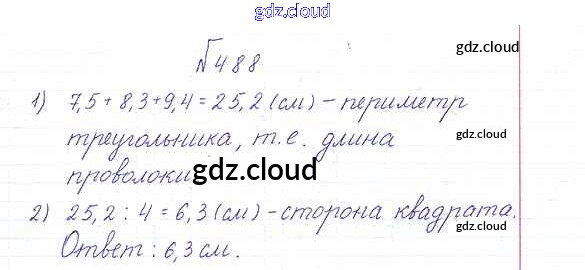 gdz.cloud
№488
gdz.cloud
1) 7,5+8,3+9,4=25,2(см)-периметр
треугольника, т.е. длина
gdz.cloud
проволоки
gdz.cloud
2) 25,2:4=6,3(см)-сторона квадрата.
Ответ: 6,3см.
gdz.cloud
gdz.cloud